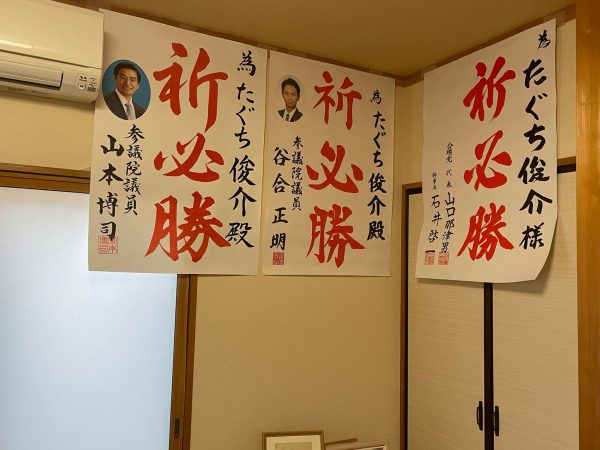 為 たぐち俊介殿
祈必勝
参議院議員
山本博司
為 たぐち俊介殿
祈必勝
参議院議員
谷合正明
為 たぐち俊介様
祈必勝
公明党 代表 山口那津男
幹事長 石井啓